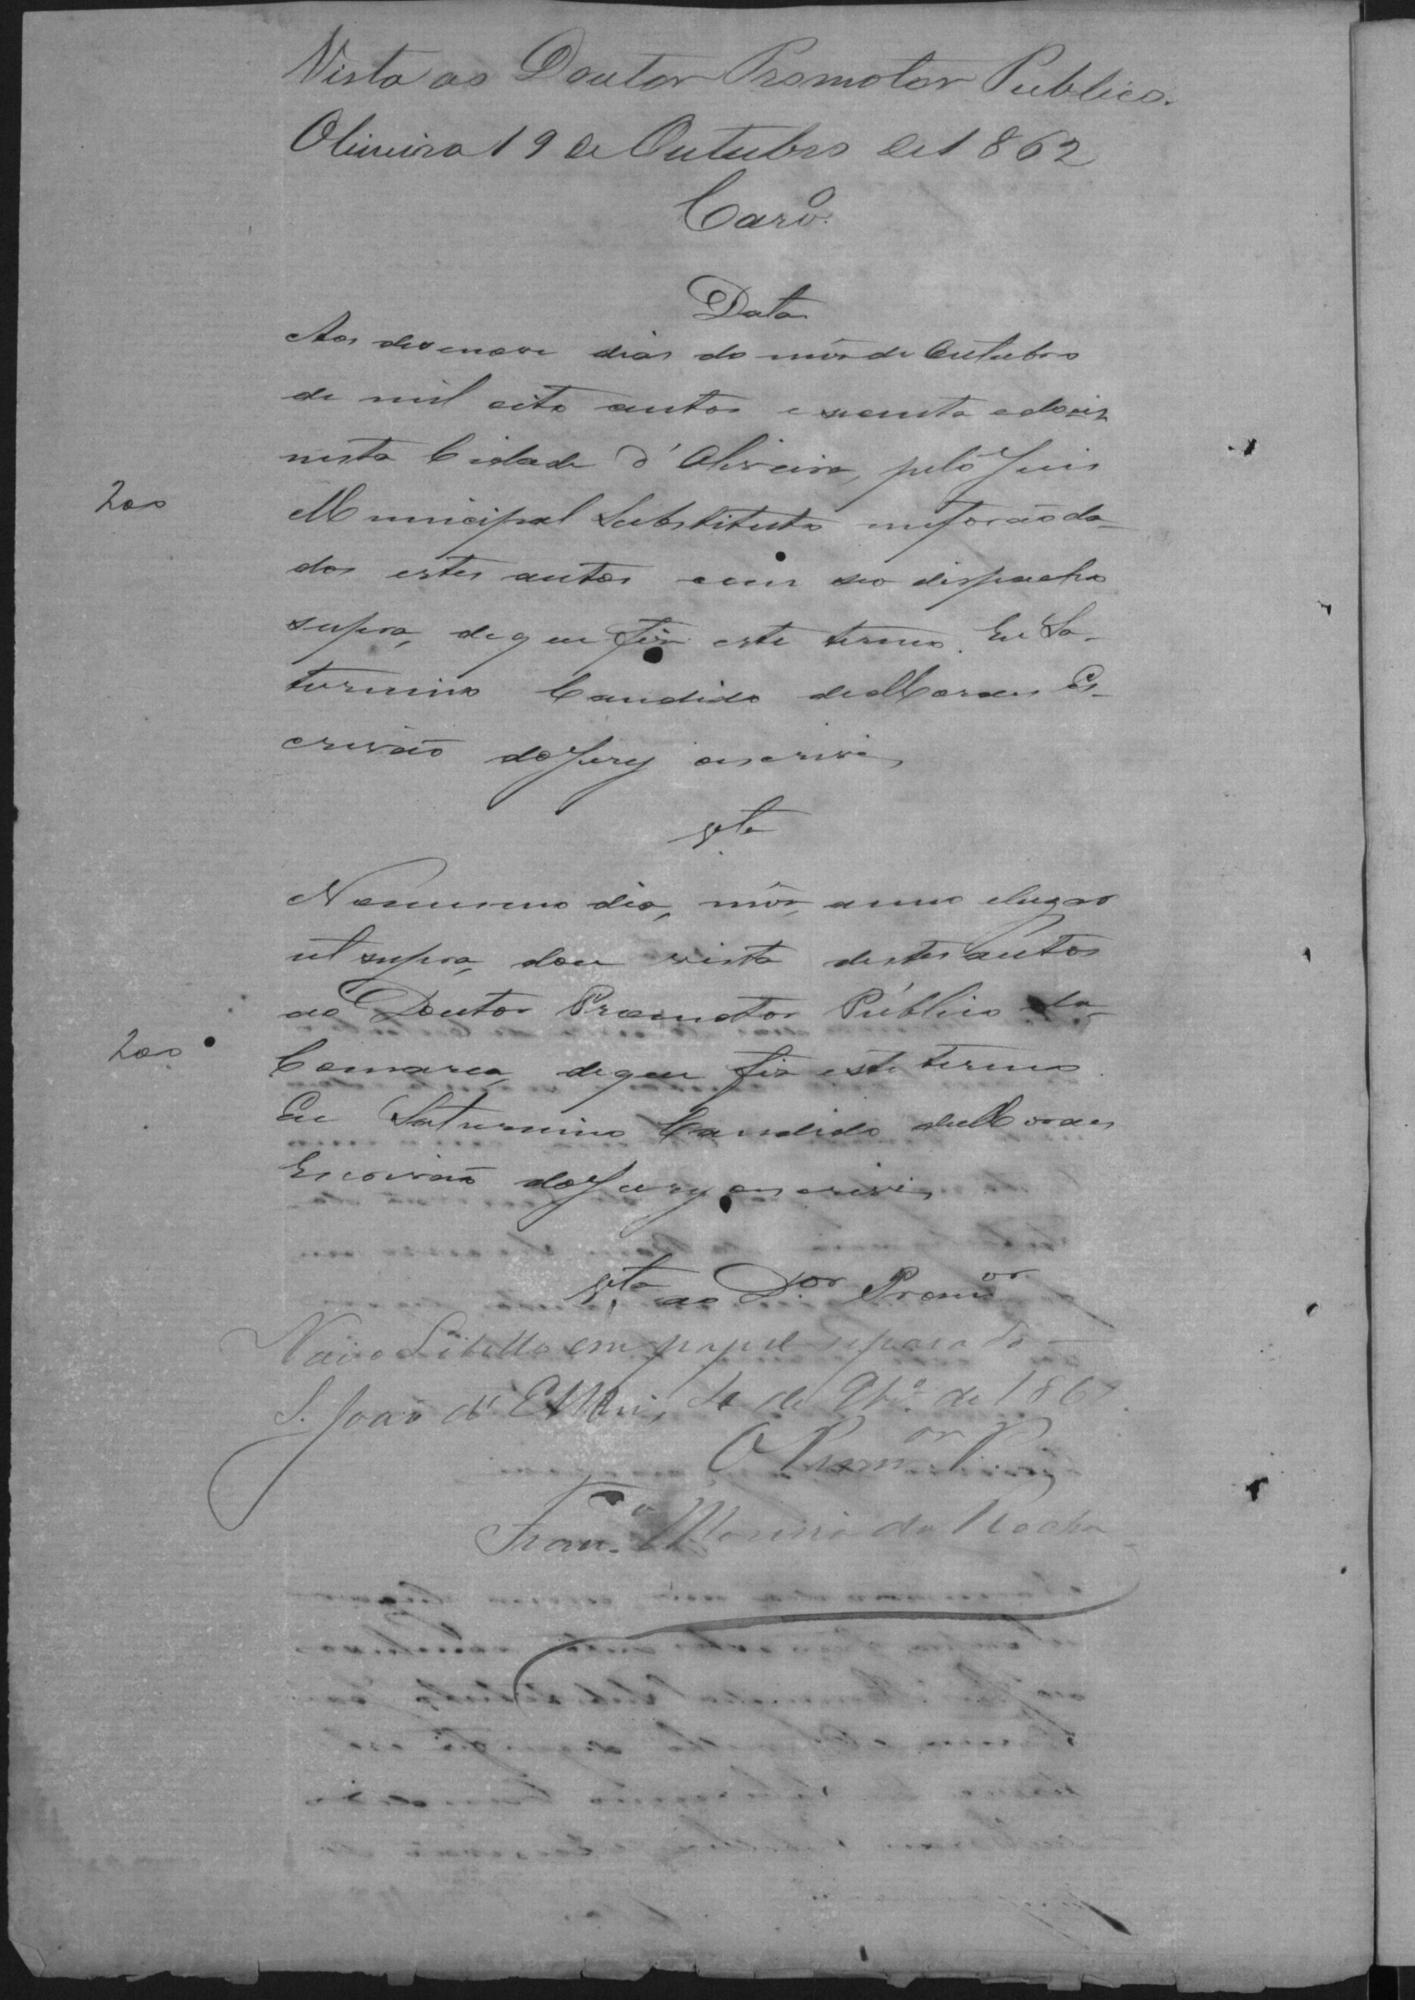 Vista ao Doutor Promotor Publico.
Oliveira 19 de Outubro de 1862
Data
Aos desenove dias do mês de Outubro
de mil oito centos e secenta e dois
nesta Cidade d'Oliveira, pelo Juis
200
Municipal Substituto me forão da-
dos estes autos com seo dispacho
supra, de que fiz este termo. Eu Sa-
turnino Candido de Moraes Es-
crivão do Jury o escrevi
Vta
No mesmo dia, mês, anno e lugar
ut supra, dou vista destes autos
ao Doutor Promotor Público da
200
Comarca, de que fiz este termo
Eu Saturnino Candido de Moraes
Escrivão do Jury o escrevi
Vta ao Dor Promor
Vai o Libello em papel separado
S. João d'El Rei, 4 de 9bro de 186
O Promor P
Franco da Rocha